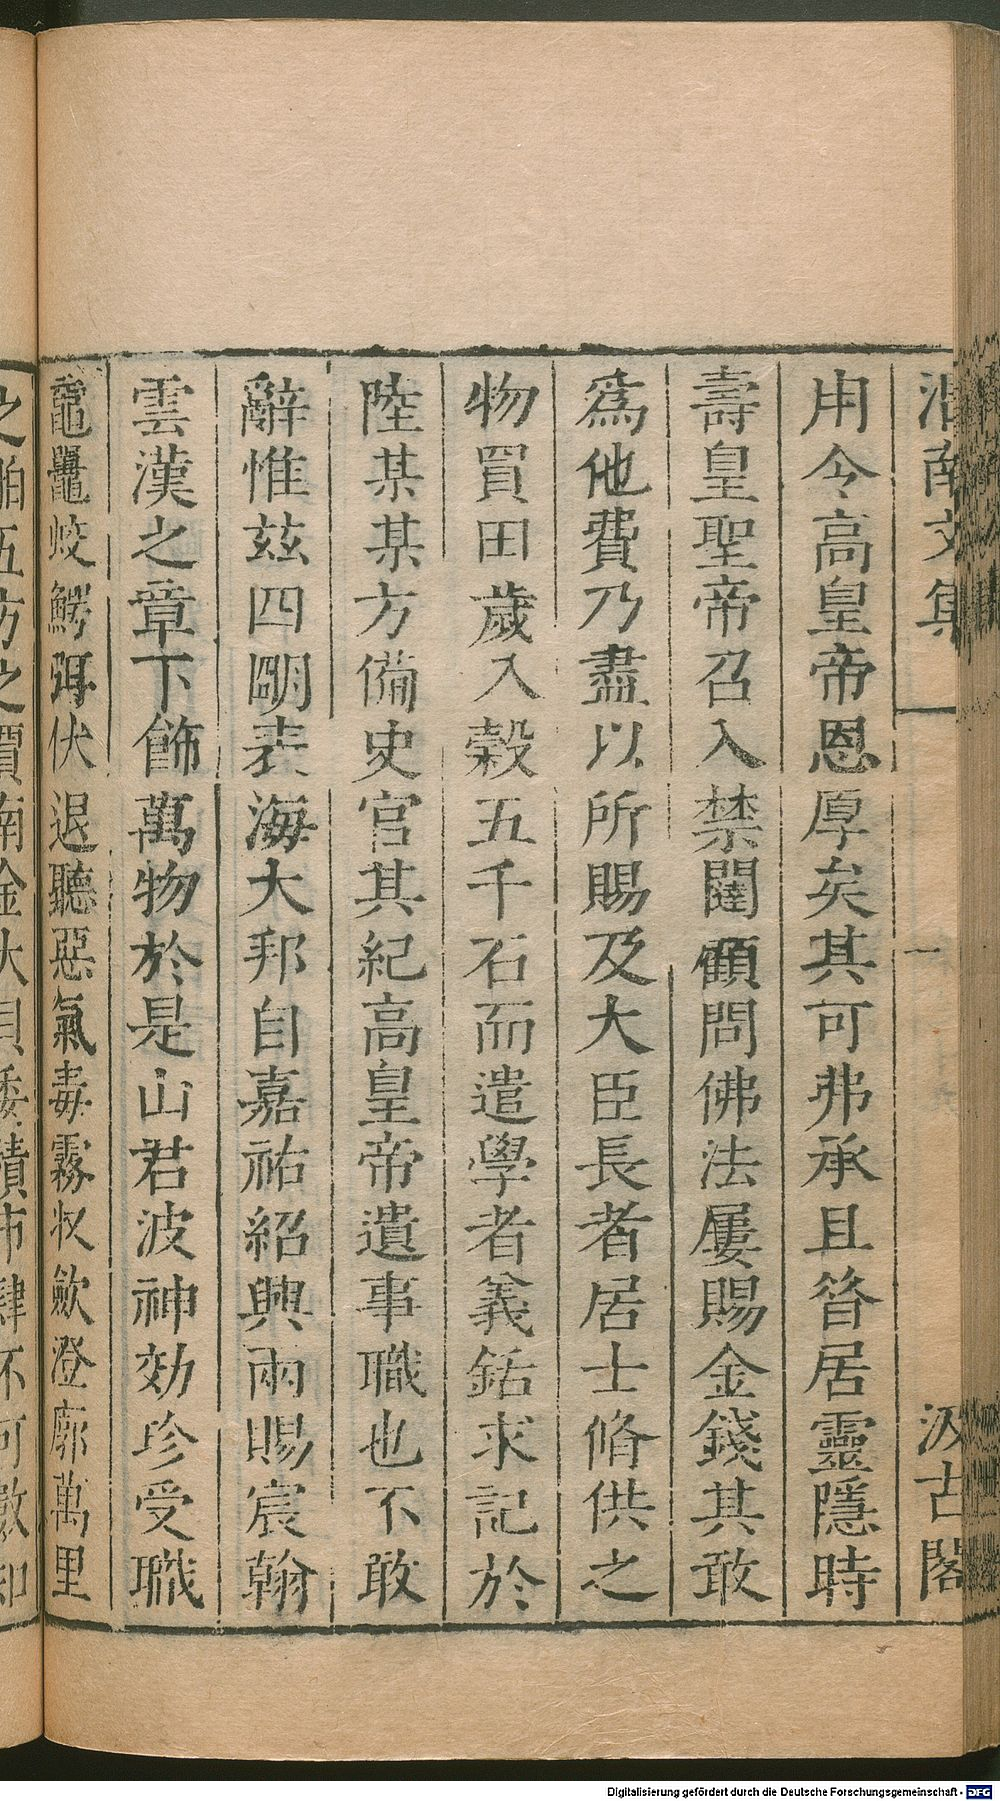 渭南文集 一 汲古閣
用令高皇帝恩厚矣其可弗承且昝居靈隱時
壽皇聖帝召入禁闥顧問佛法屢賜金錢其敢
爲他費乃盡以所賜及大臣長者居士脩供之
物買田歲入榖五千石而遣學者義銛求記於
陸某某方備史官其紀高皇帝遺事職也不敢
辭惟玆四朙表海大邦自嘉祐紹興兩賜宸翰
雲漢之章下飾萬物於是山君波神効珍受職
黿鼉蛟鰐弭伏退聽惡氣毒霧収歛澄廓萬里
之舶五方之賈南金大貝委積市肆不可數知
Digitalisierung gefördert durch die Deutsche Forschungsgemeinschaft - DFG